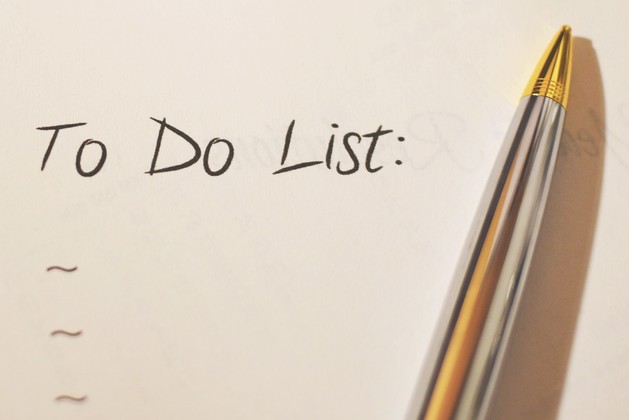 To Do List:
~
~
~